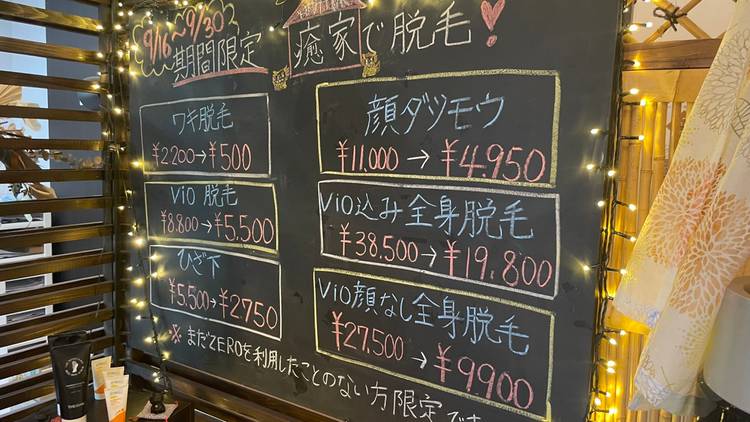 9/16~9/30
期間限定
癒家で脱毛
ワキ脱毛
¥2.200→¥500
Vio 脱毛
¥8.800→¥5.500
ひざ下
¥5.500→¥2750
顔ダツモウ
¥11.000→¥4.950
Vio込み全身脱毛
¥38.500→¥19.800
Vio顔なし全身脱毛
¥27.500→¥9900
※まだZEROを利用したことのない方限定です